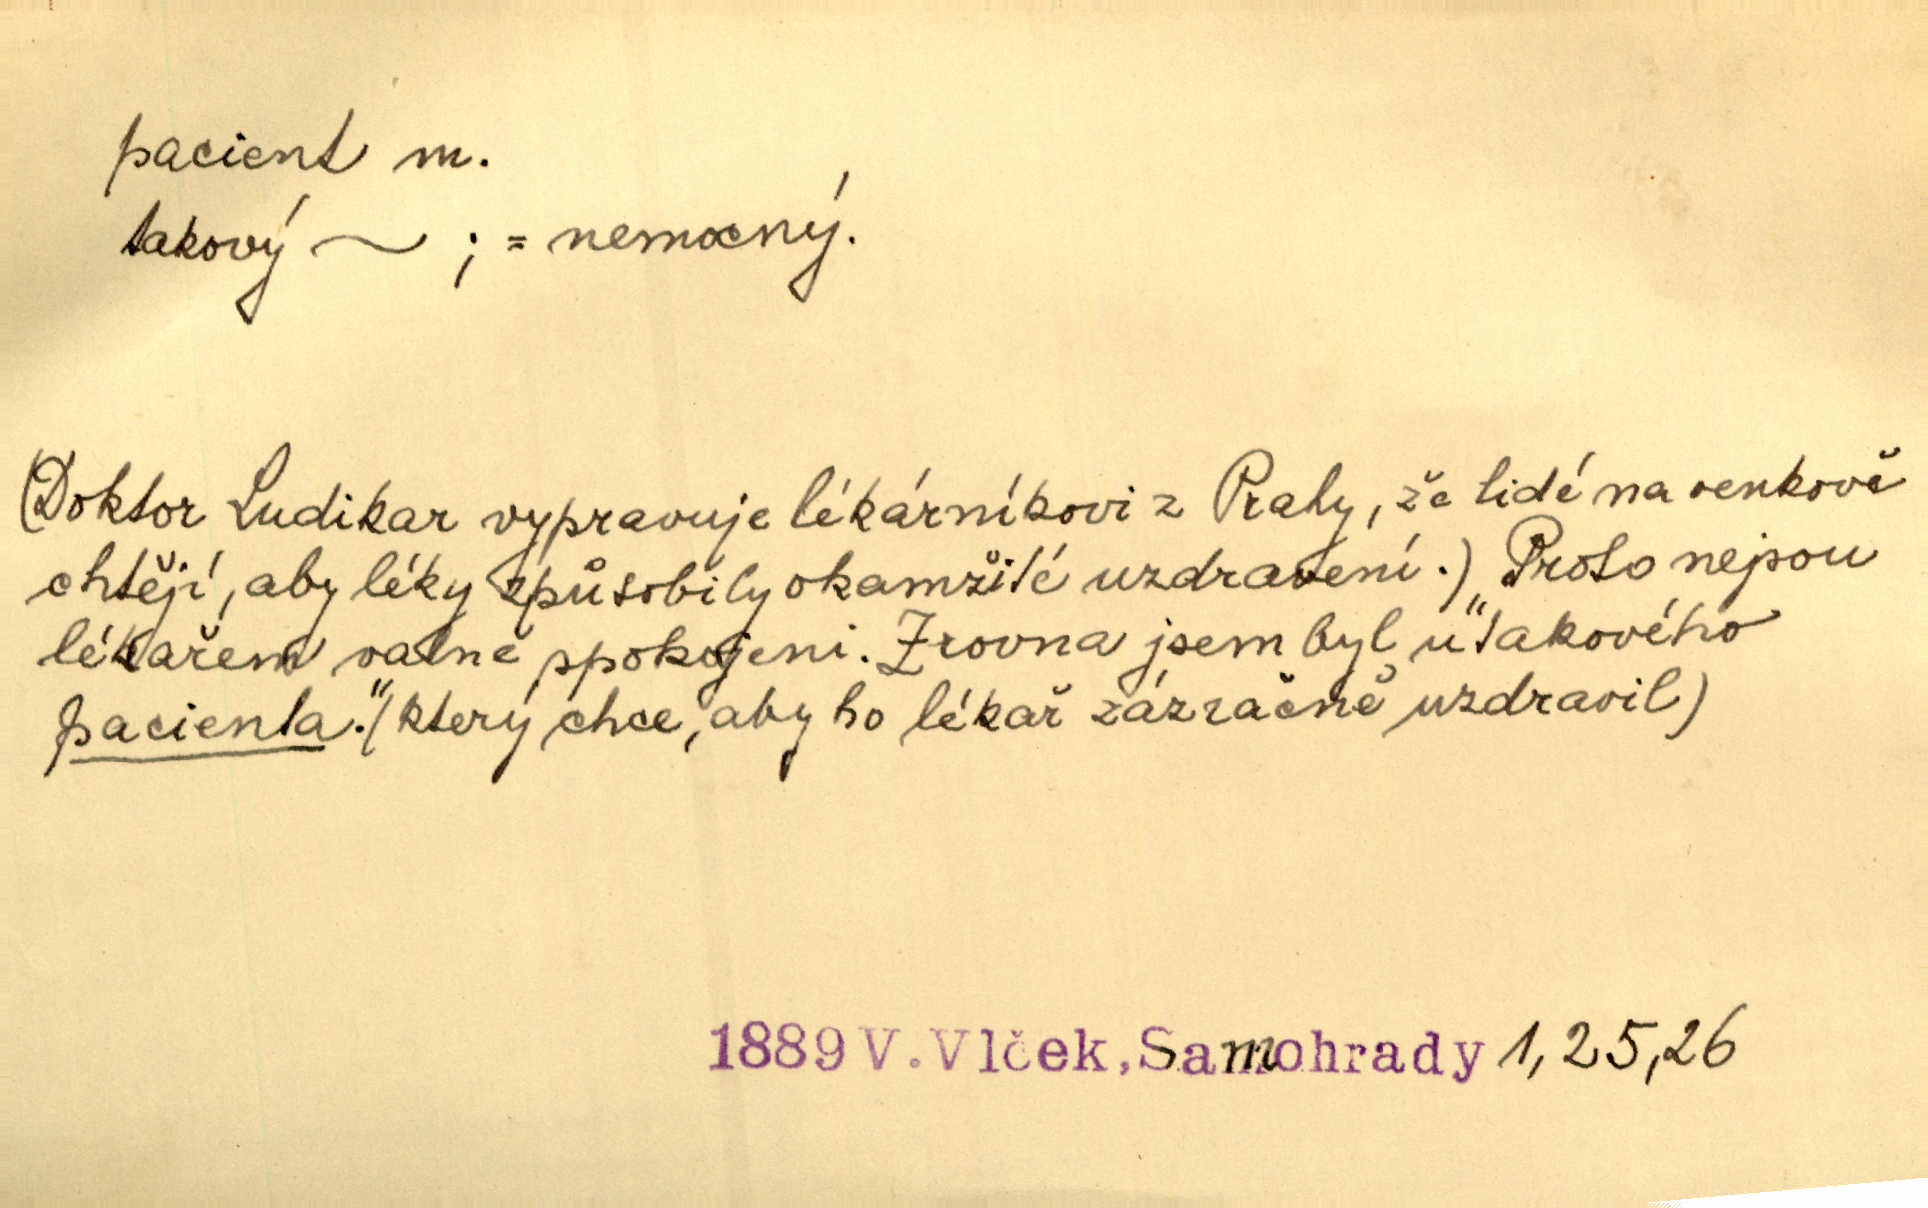 pacient m.
takový ~ ; = nemocný.
(Doktor Ludikar vypravuje lékárníkovi z Prahy, že lidé na venkově
chtějí, aby léky způsobily okamžité uzdravení.) Proto nejsou
lékařem valně spokojeni. Zrovna jsem byl u "takového
pacienta." (který chce, aby ho lékař zázračně uzdravil)
1889 V. Vlček, Samohrady 1, 25, 26